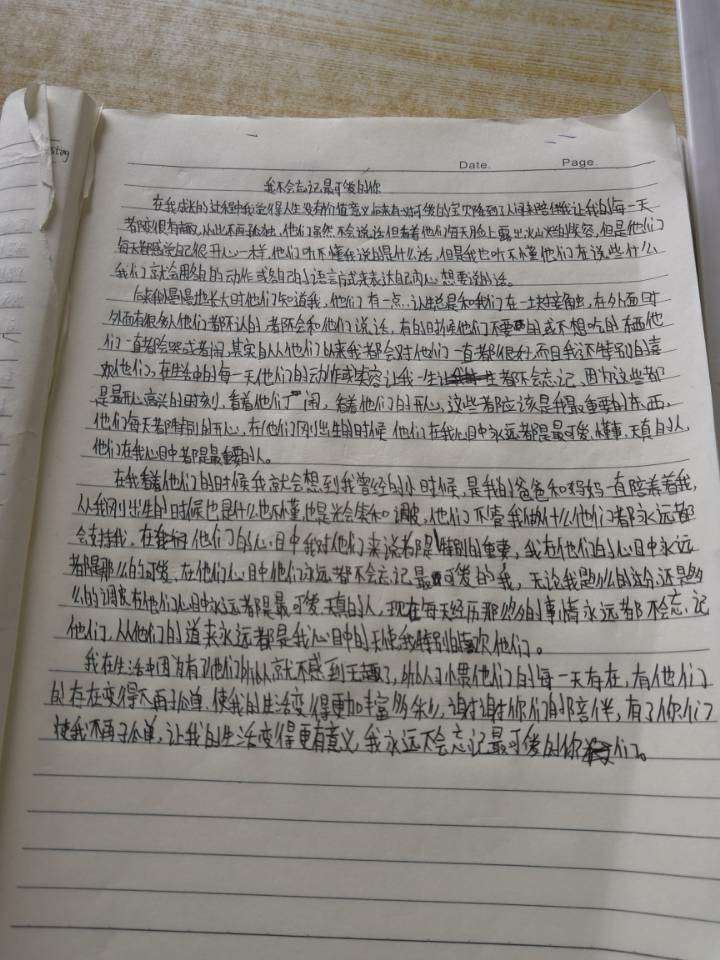 sting
Date. Page
我不会忘记最可爱的你
在我成长的过程中我觉得人生没有价值意义后来有对可爱的宝贝降到了人间来陪伴我让我的每一天
都变很有趣,从此不再孤独,他们虽然不会说话但看着他们每天脸上露出火灿烂的笑容,但是他们
每天都感觉自己很开心一样,他们听不懂我说的是什么话,但是我也听不懂他们在说些什么
我们就会用各自的动作或自己的语言方式来表达自己内心想要说的话。
他们慢慢地长大时他们知道我,他们有一点认生总是和我们在一块接触,在外面时
外面有很多人他们都不认的,都不会和他们说话,有的时候他们不要的或不想吃的东西他
们一直都会哭或者闹,其实自从他们以来我都会对他们一直都很好,而且我还特别的喜
欢他们,在生活中的每一天他们的动作或笑容让我一生都不会忘记,因为这些都
是最开心高兴的时刻,看着他们闹,看着他们的开心,这些都应该是我最重要的东西,
他们每天都特别的开心,在他们刚出生的时候他们在我心目中永远都是最可爱、懂事、天真的人,
他们在我心目中都是最重要的人。
在我看着他们的时候我就会想到我曾经的小时候,是我的爸爸和妈妈一直陪养着我,
从我刚出生的时候也是什么也不懂也是光会哭和调皮,他们不管我做什么他们都永远都
会支持我,在他们的心目中我对他们来说都是特别的重要,我在他们的心目中永远
都是那么的可爱、在他们心目中他们永远都不会忘记最可爱的我,无论我是多么的过分还是多
么的调皮在他们心目中永远都是最可爱、天真的人,现在每天经历那些的事情永远都不会忘记
他们,从他们的道来永远都是我心目中的天使我特别的喜欢他们。
我在生活中因为有了他们的加入就不感到无趣了,的人习惯他们的每一天存在,有他们
的存在变得不再孤单,使我的生活变得更加丰富多彩,谢谢你们的陪伴,有了你们
使我不再孤单,让我的生活变得更有意义,我永远不会忘记最可爱的你们。